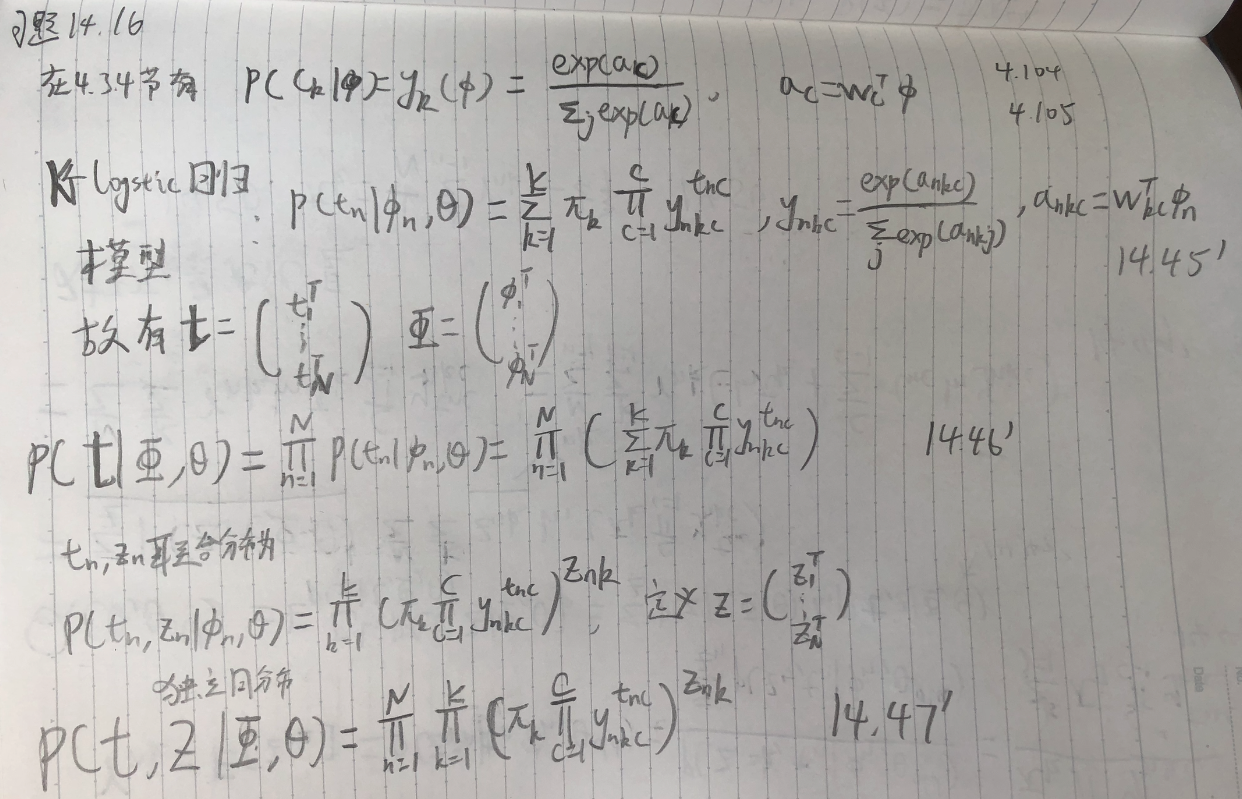 习题14.16
在4.3.4节有 P(Ck|φ)=yk(φ)=exp(ak)/Σj exp(ak), ac=wc^T φ 4.104
4.105
将Logstic回归: P(tn|φn,θ)=Σ_{k=1}^{K} πk Π_{c=1}^{C} ynkc^{tnc}, ynkc=exp(ankc)/Σj exp(ankj), ankc=wkc^T φn
模型 14.45'
故有 t=(t1^T ⋮ tN^T) Φ=(φ1^T ⋮ φN^T)
P(t|Φ,θ)=Π_{n=1}^{N} P(tn|φn,θ)=Π_{n=1}^{N}(Σ_{k=1}^{K} πk Π_{c=1}^{C} ynkc^{tnc}) 14.46'
tn,zn联合分布为
P(tn,zn|φn,θ)=Π_{k=1}^{K}(πk Π_{c=1}^{C} ynkc^{tnc})^{znk}, 定义 z=(z1^T ⋮ zN^T)
独立同分布
P(t,Z|Φ,θ)=Π_{n=1}^{N} Π_{k=1}^{K}(πk Π_{c=1}^{C} ynkc^{tnc})^{znk} 14.47'